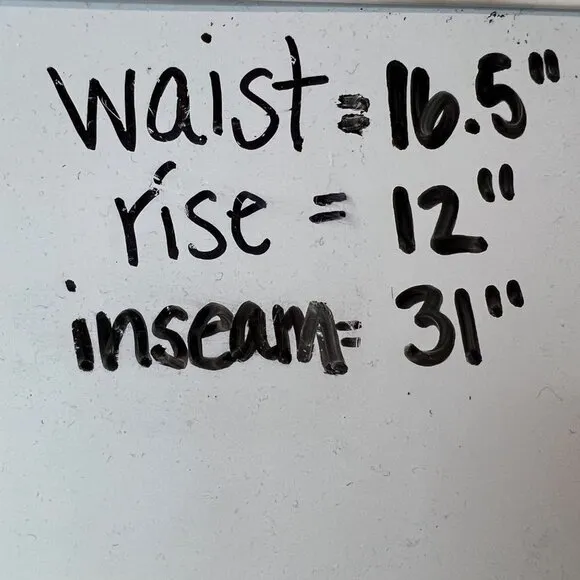 waist = 16.5"
rise = 12"
inseam = 31"